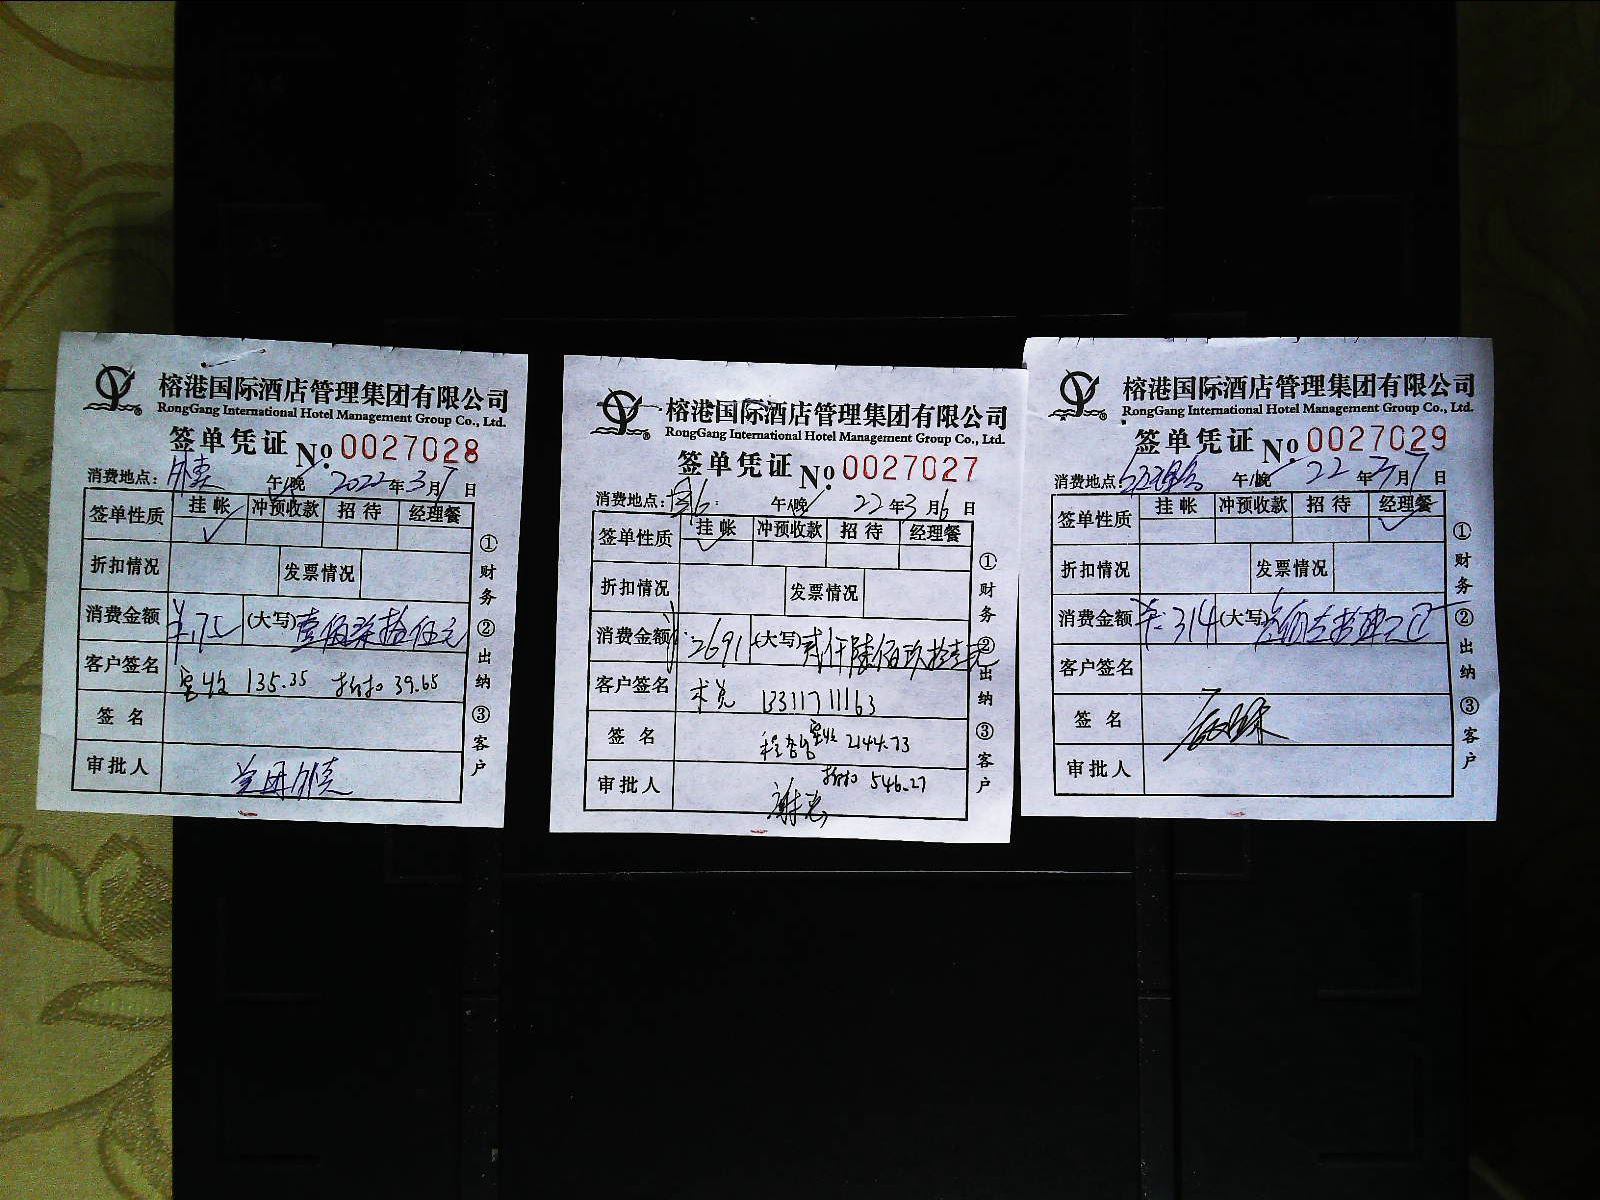 榕港国际酒店管理集团有限公司
RongGang International Hotel Management Group Co., Ltd.
签单凭证 No. 0027028
消费地点: 午/晚 2022年3月7日
签单性质 挂帐 冲预收款 招待 经理餐
折扣情况 发票情况
消费金额 ¥175 (大写) 壹佰柒拾伍元
客户签名 实收 135.35 折扣 39.65
签名
审批人
①财务 ②出纳 ③客户
榕港国际酒店管理集团有限公司
RongGang International Hotel Management Group Co., Ltd.
签单凭证 No. 0027027
消费地点: 午/晚 22年3月6日
签单性质 挂帐 冲预收款 招待 经理餐
折扣情况 发票情况
消费金额 ¥:2691 (大写) 贰仟陆佰玖拾壹元
客户签名 13311711163
签名 实收 2144.73
折扣 546.27
审批人 谢总
①财务 ②出纳 ③客户
榕港国际酒店管理集团有限公司
RongGang International Hotel Management Group Co., Ltd.
签单凭证 No. 0027029
消费地点: 午/晚 22年3月7日
签单性质 挂帐 冲预收款 招待 经理餐
折扣情况 发票情况
消费金额 ¥:314 (大写)
客户签名
签名
审批人
①财务 ②出纳 ③客户